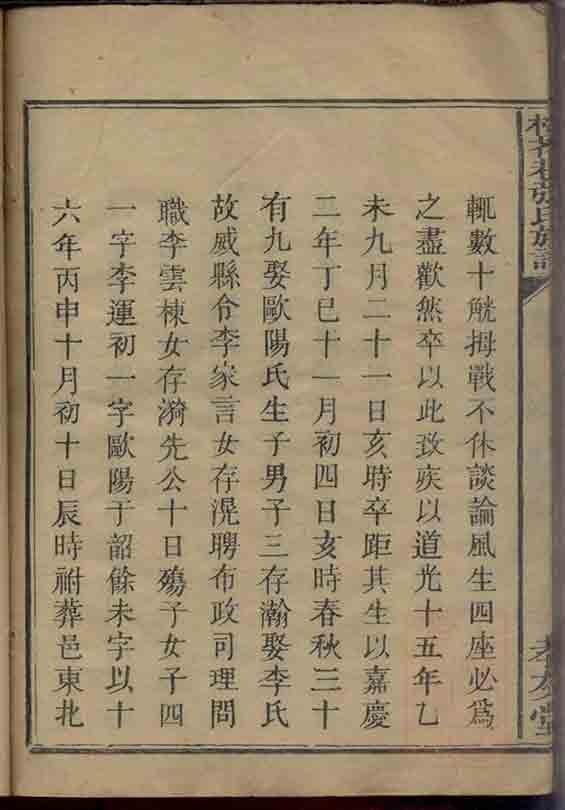 輒數十觥拇戰不休談論風生四座必爲
之盡歡然卒以此致疾以道光十五年乙
未九月二十一日亥時卒距其生以嘉慶
二年丁巳十一月初四日亥時春秋三十
有九娶歐陽氏生子男子三存瀚娶李氏
故威縣令李家言女存滉聘布政司理問
職李雲棟女存漪先公十日殤子女子四
一字李運初一字歐陽于韶餘未字以十
六年丙申十月初十日辰時祔葬邑東北
張氏族譜
孝友堂